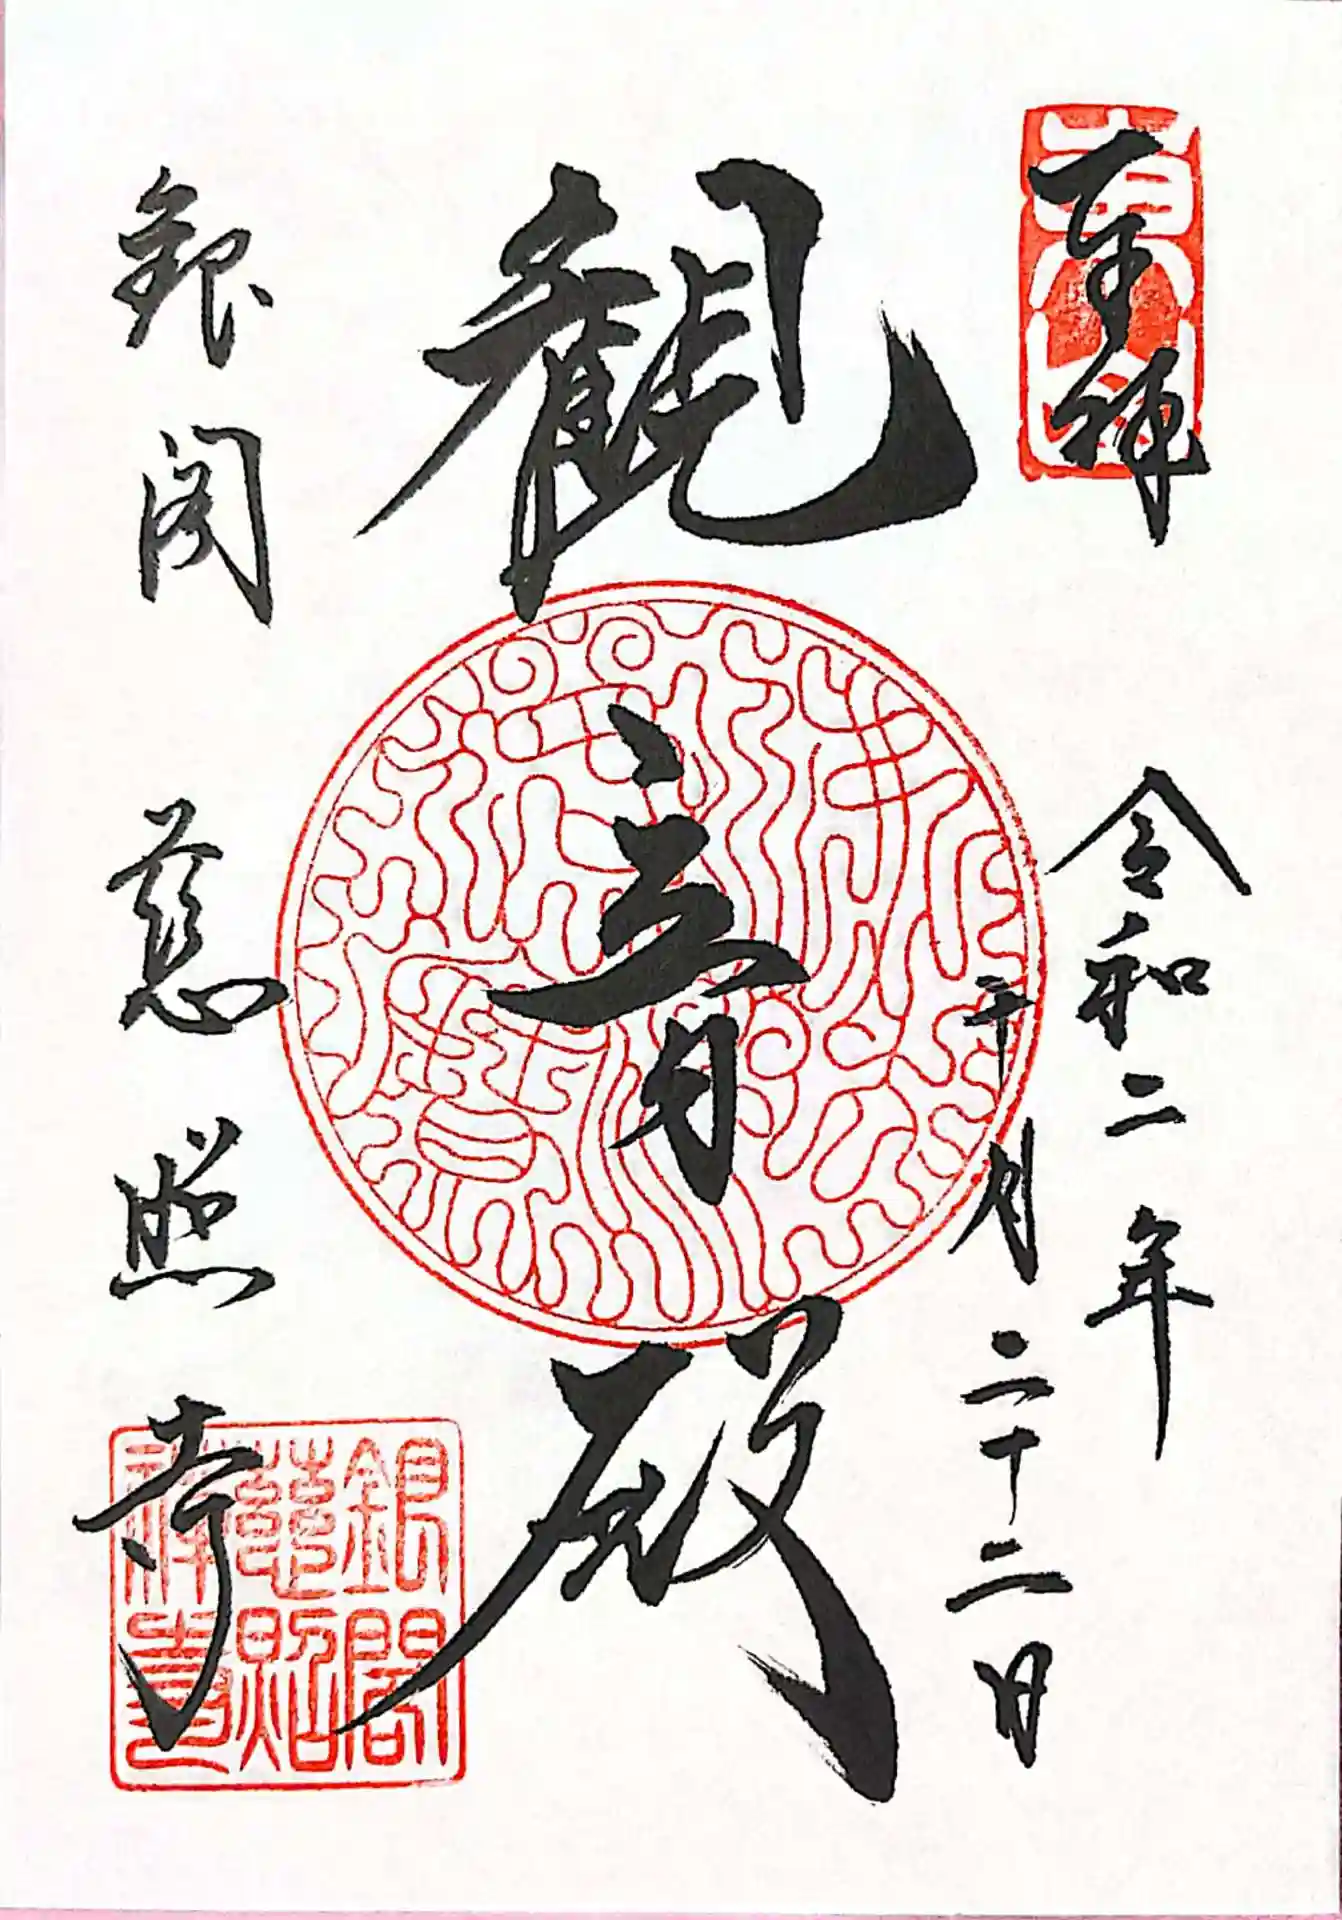 奉拝
令和二年
月二十二日
觀音殿
銀閣慈照寺
銀閣
慈照
禅寺